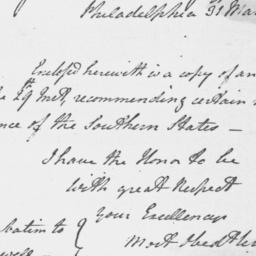 Philadelphia 31 Mar
Enclosed herewith is a copy of an
29th Inst, recommending certain
nce of the Southern States —
I have the Honor to be
with great Respect
your Excellencys
batim to
Most Obedt
well —